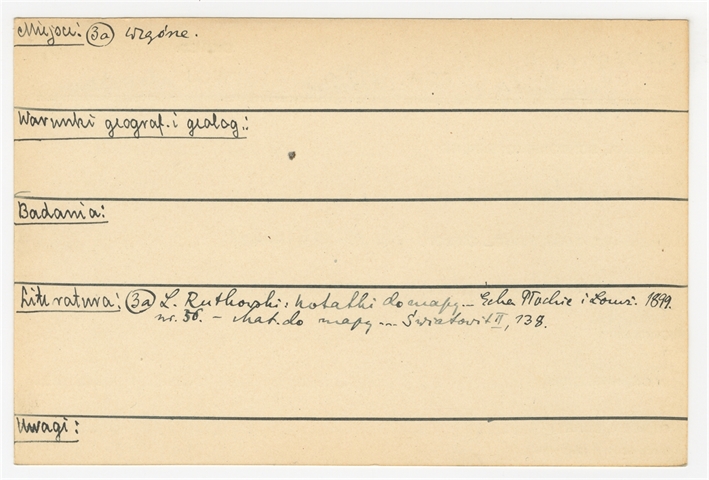 Miejsce: (3a) wzgórze.
Warunki geograf. i geolog.:
Badania:
Literatura: (3a) L. Rutkowski: Notatki do mapy... Echa Płockie i Łomż. 1899.
nr. 56. – Mat. do mapy... Światowit II, 138.
Uwagi: